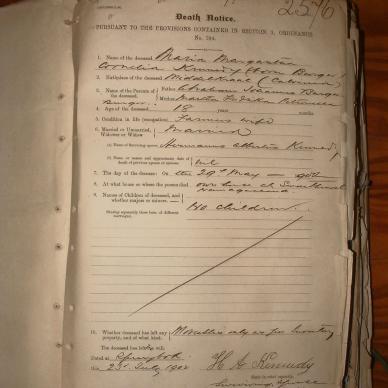 25
Death Notice.
PURSUANT TO THE PROVISIONS CONTAINED IN SECTION 9, ORDINANCE
No. 104.
1. Name of the deceased Maria Margaretha
Cornelia Kennedy (born Burger)
2. Birthplace of the deceased Middelkraal (Calvinia)
3. Names of the Parents of the deceased. Father Abraham Johannes Burger
Mother Martha
Burger
4. Age of the deceased 18 years months
5. Condition in life (occupation) Farmers wife
6. Married or Unmarried, Widower or Widow Married
(a) Name of Surviving spouse Hermanus Albertus Kennedy
(b) Name or names and approximate date of death of previous spouse or spouses Nil
7. The day of the decease On the 29th May
8. At what house or where the person died own house at
9. Names of Children of deceased, and whether majors or minors. No children.
Stating separately those born of different marriages.
10. Whether deceased has left any property, and of what kind. Movables only as per Inventory
The deceased has left
Dated at Springbok
the 23 July 1902 H A Kennedy
State in what capacity.
Surviving Spouse